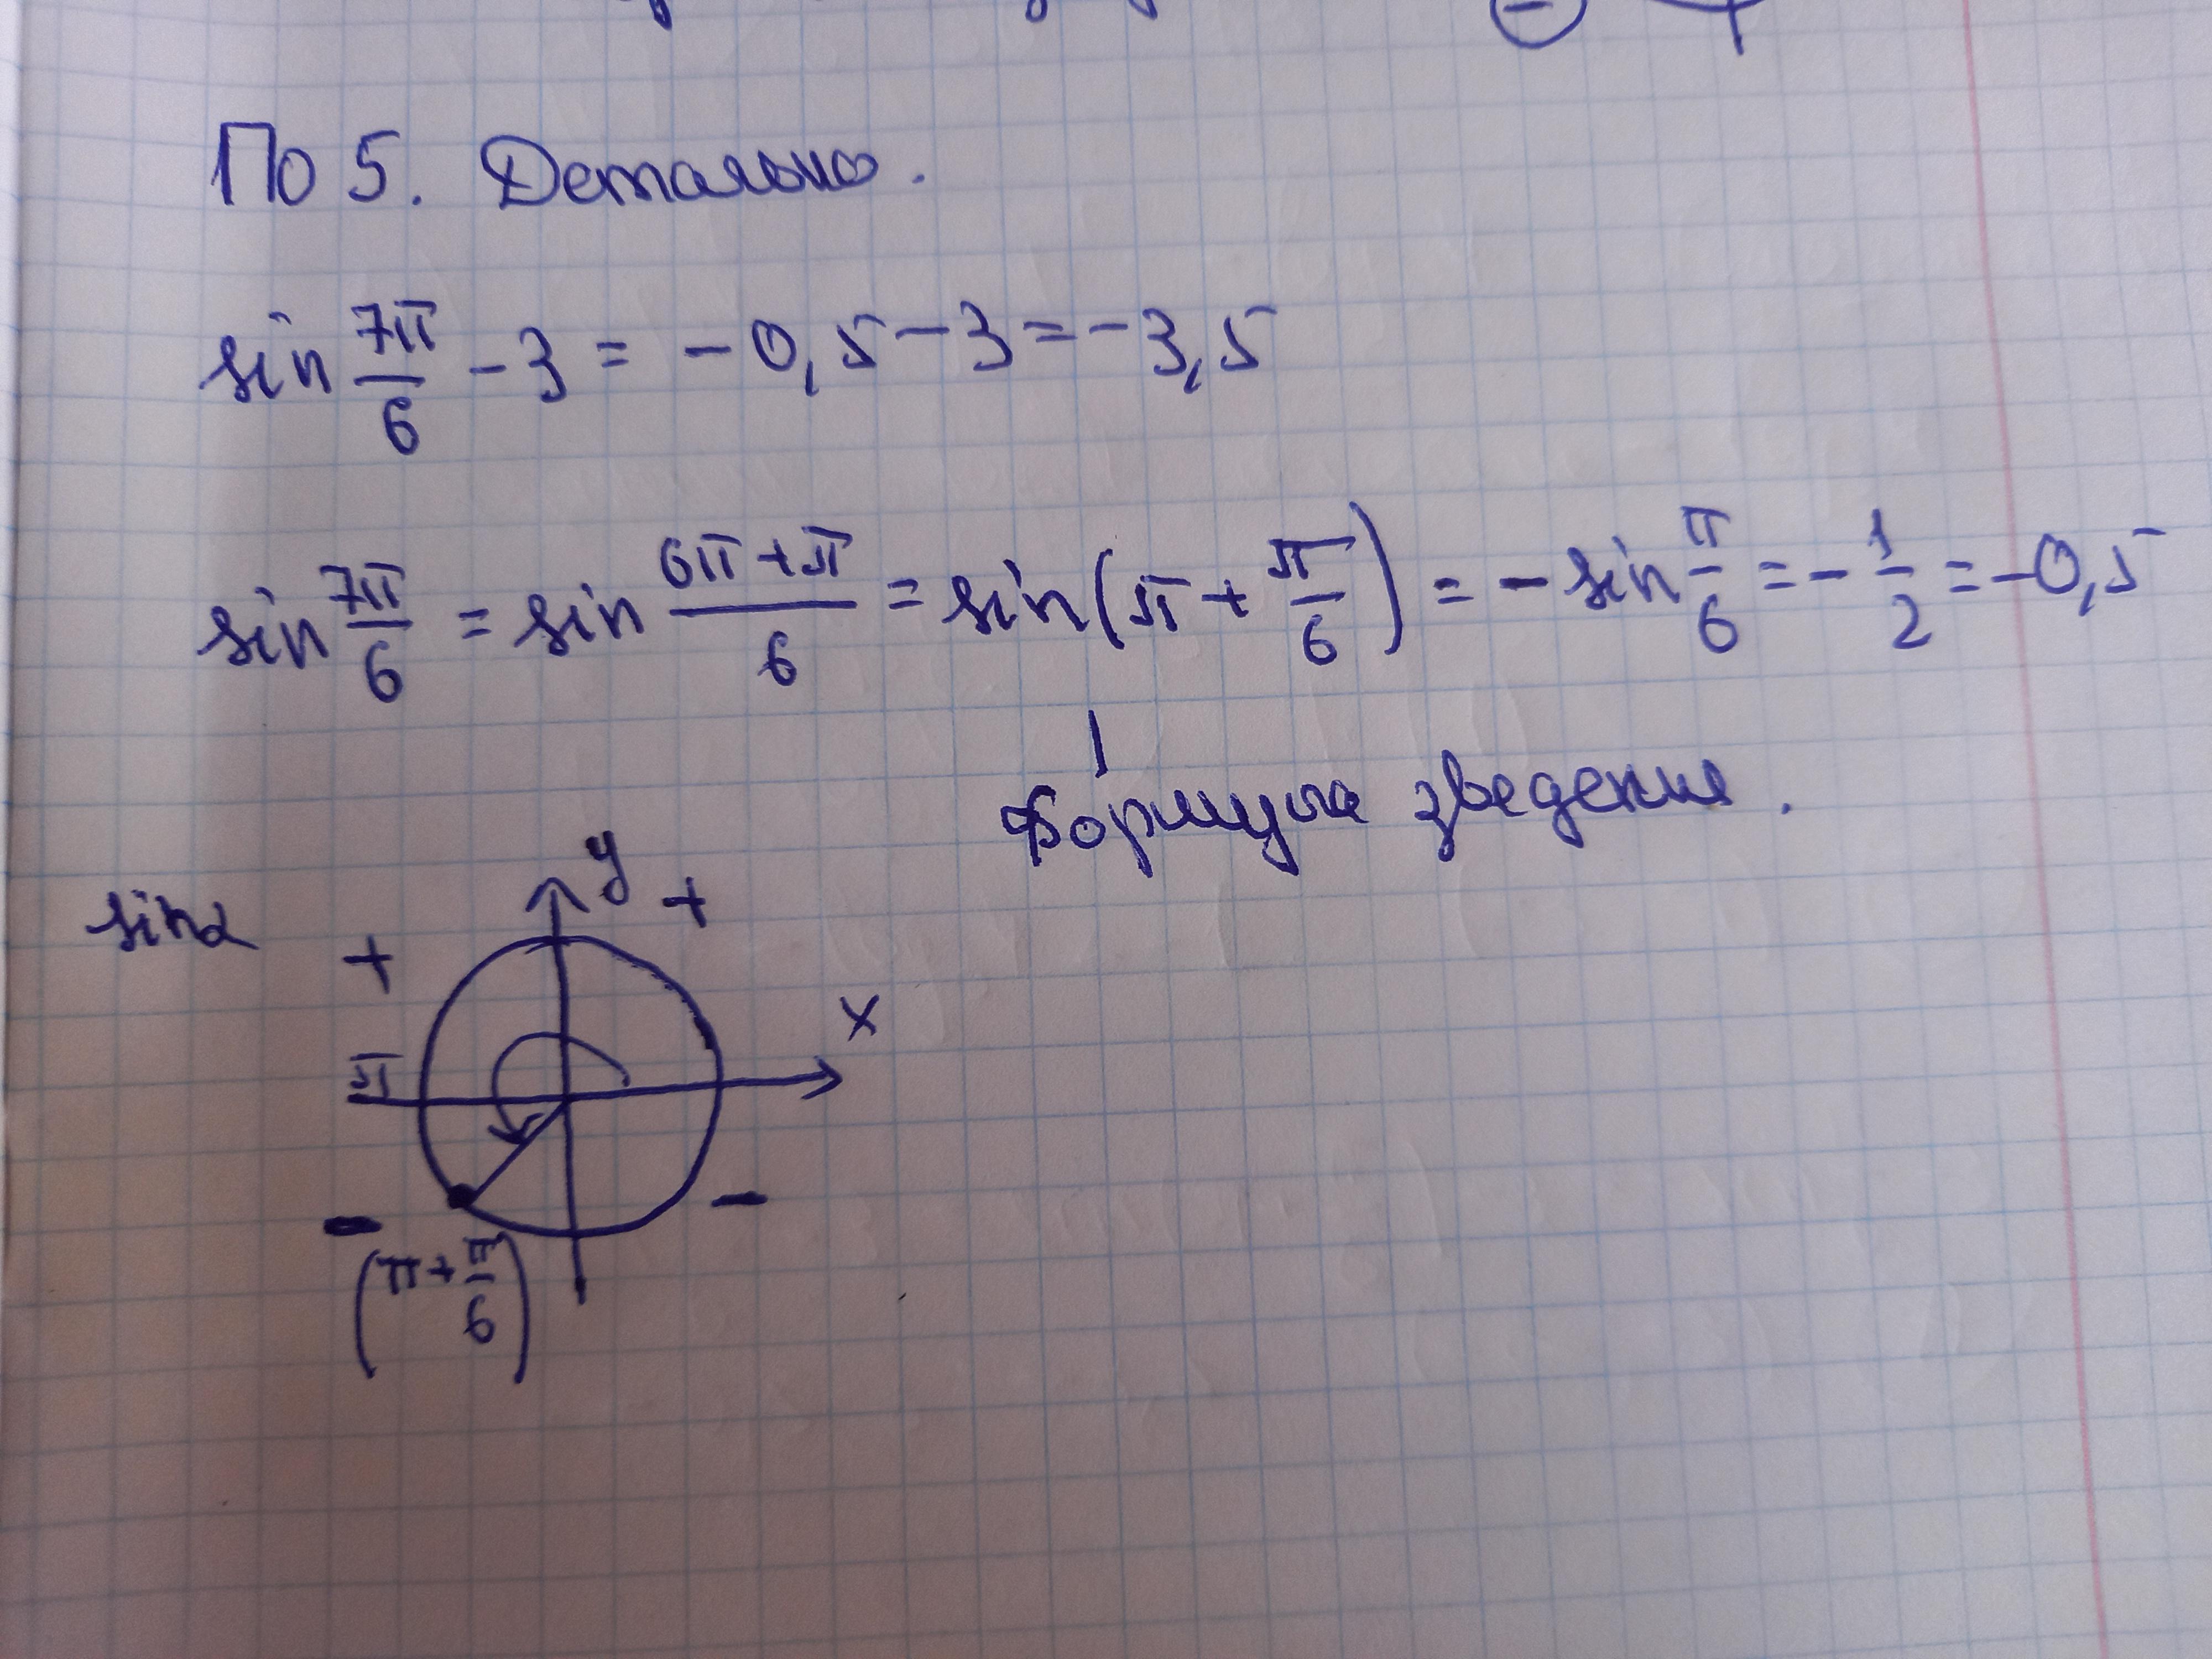 По 5. Детально.
sin 7π/6 - 3 = -0,5 - 3 = -3,5
sin 7π/6 = sin (6π+π)/6 = sin(π + π/6) = - sin π/6 = - 1/2 = -0,5
Формула зведения.
sinα
y
+
+
x
π
-
-
(π + π/6)